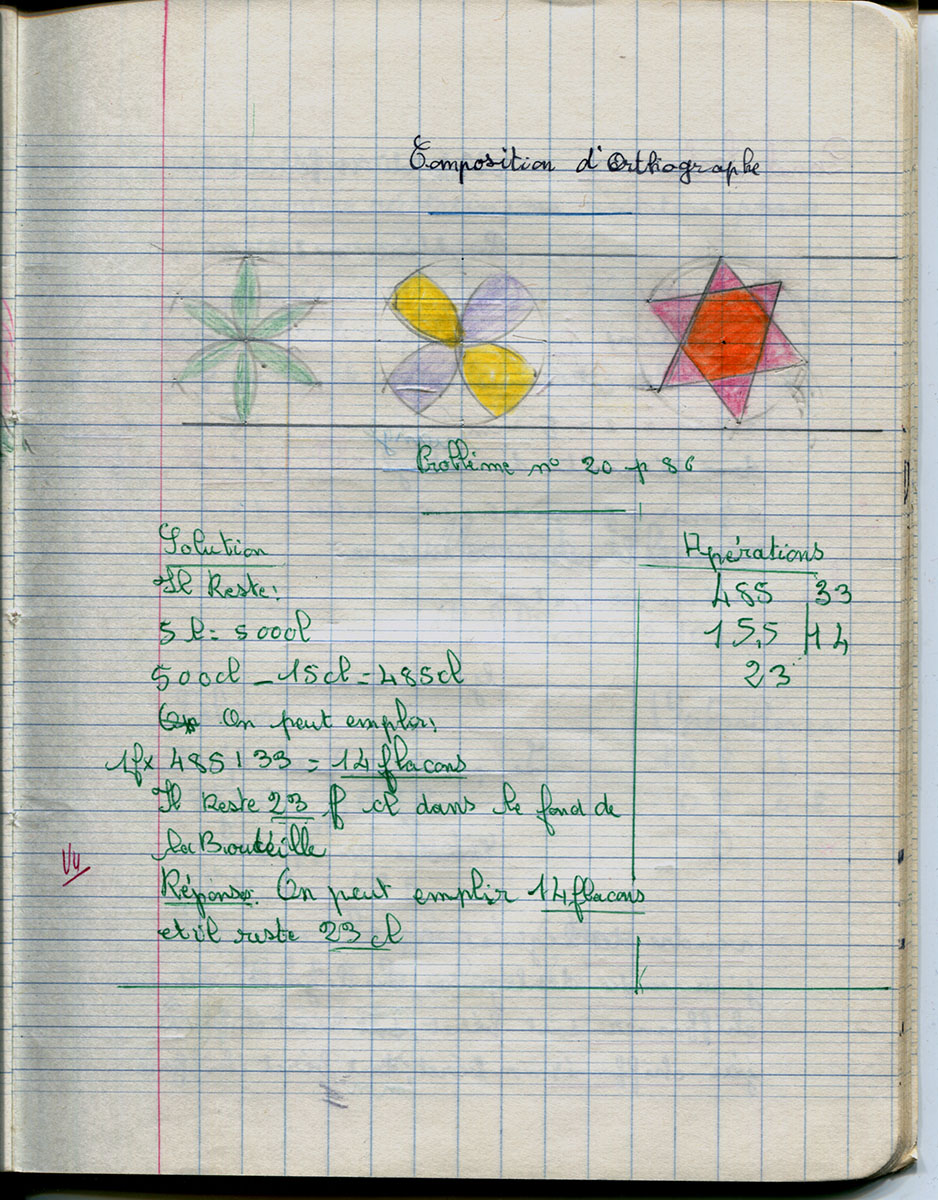 Composition d'Orthographe
Problème n° 20 p 86
Solution
Opérations
Il Reste:
485 33
5 l = 500cl
155 14
500cl - 15cl = 485cl
23
On peut emplir:
1f x 485 : 33 = 14 flacons
Il Reste 23 f cl dans le fond de
la Bouteille
Vu
Réponse: On peut emplir 14 flacons
et il reste 23 cl